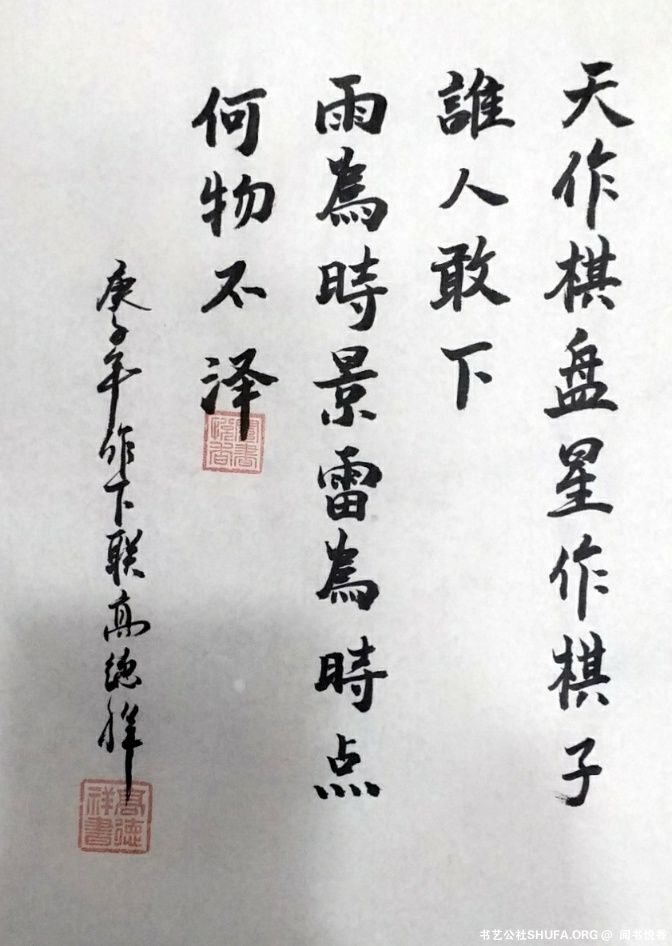 天作棋盘星作棋子
誰人敢下
雨為時景雷為時点
何物不泽
庚子年作下联高德祥
高德祥書
书艺公社SHUFA.ORG @ 闻书悦香